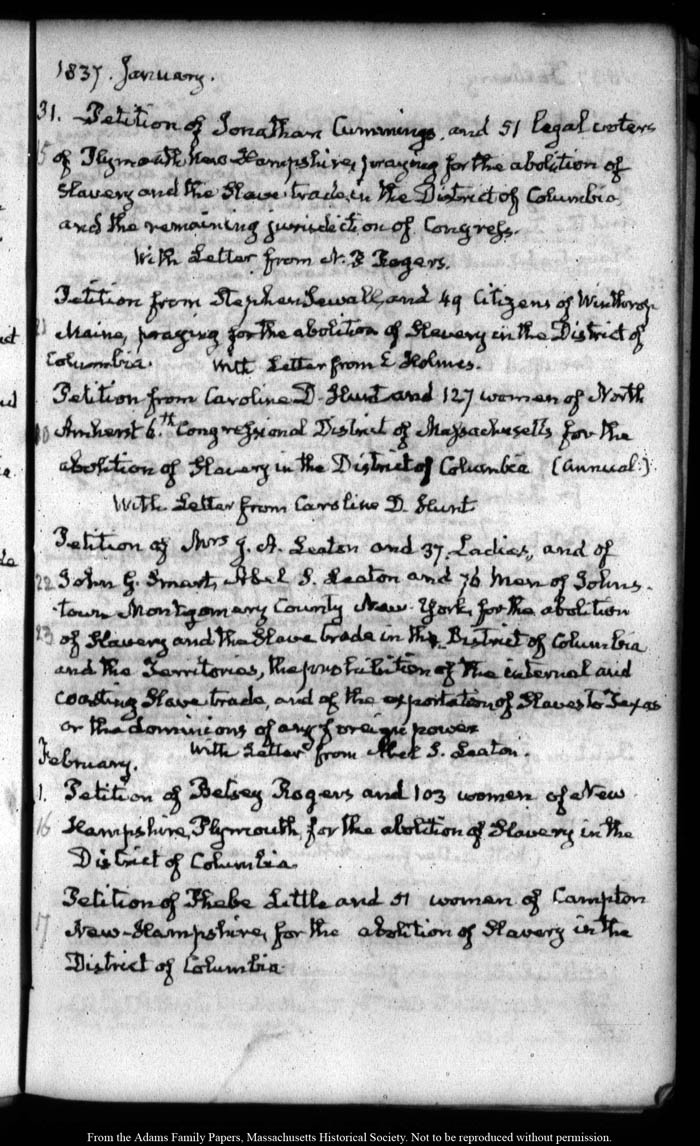 1837. January.
31. Petition of Jonathan Cummings, and 51 legal voters
15 of Plymouth, New-Hampshire, praying for the abolition of
Slavery and the Slave-trade, in the District of Columbia,
and the remaining jurisdiction of Congress.
With Letter from N. P. Rogers.
Petition from Stephen Sewall, and 49 Citizens of Winthrop
21 Maine, praying for the abolition of Slavery in the District of
Columbia. With Letter from E Holmes.
Petition from Caroline D. Hunt and 127 women of North
10 Amherst 6.th Congressional District of Massachusetts for the
abolition of Slavery in the District of Columbia (annual.)
With Letter from Caroline D. Hunt
Petition of Mrs J. A. Leaton and 37. Ladies, and of
22 John G. Smart, Abel S. Leaton and 76 men of Johns-
town Montgomery County New-York, for the abolition
23 of Slavery and the Slave trade in the District of Columbia
and the Territories, the prohibition of the internal and
coasting Slave trade, and of the exportation of Slaves to Texas
or the dominions of any foreign power
With Letter from Abel S. Leaton.
February.
1. Petition of Betsey Rogers and 103 women of New
16 Hampshire, Plymouth, for the abolition of Slavery in the
District of Columbia
Petition of Phebe Little and 51 women of Campton
17 New-Hampshire, for the abolition of Slavery in the
District of Columbia
From the Adams Family Papers, Massachusetts Historical Society. Not to be reproduced without permission.